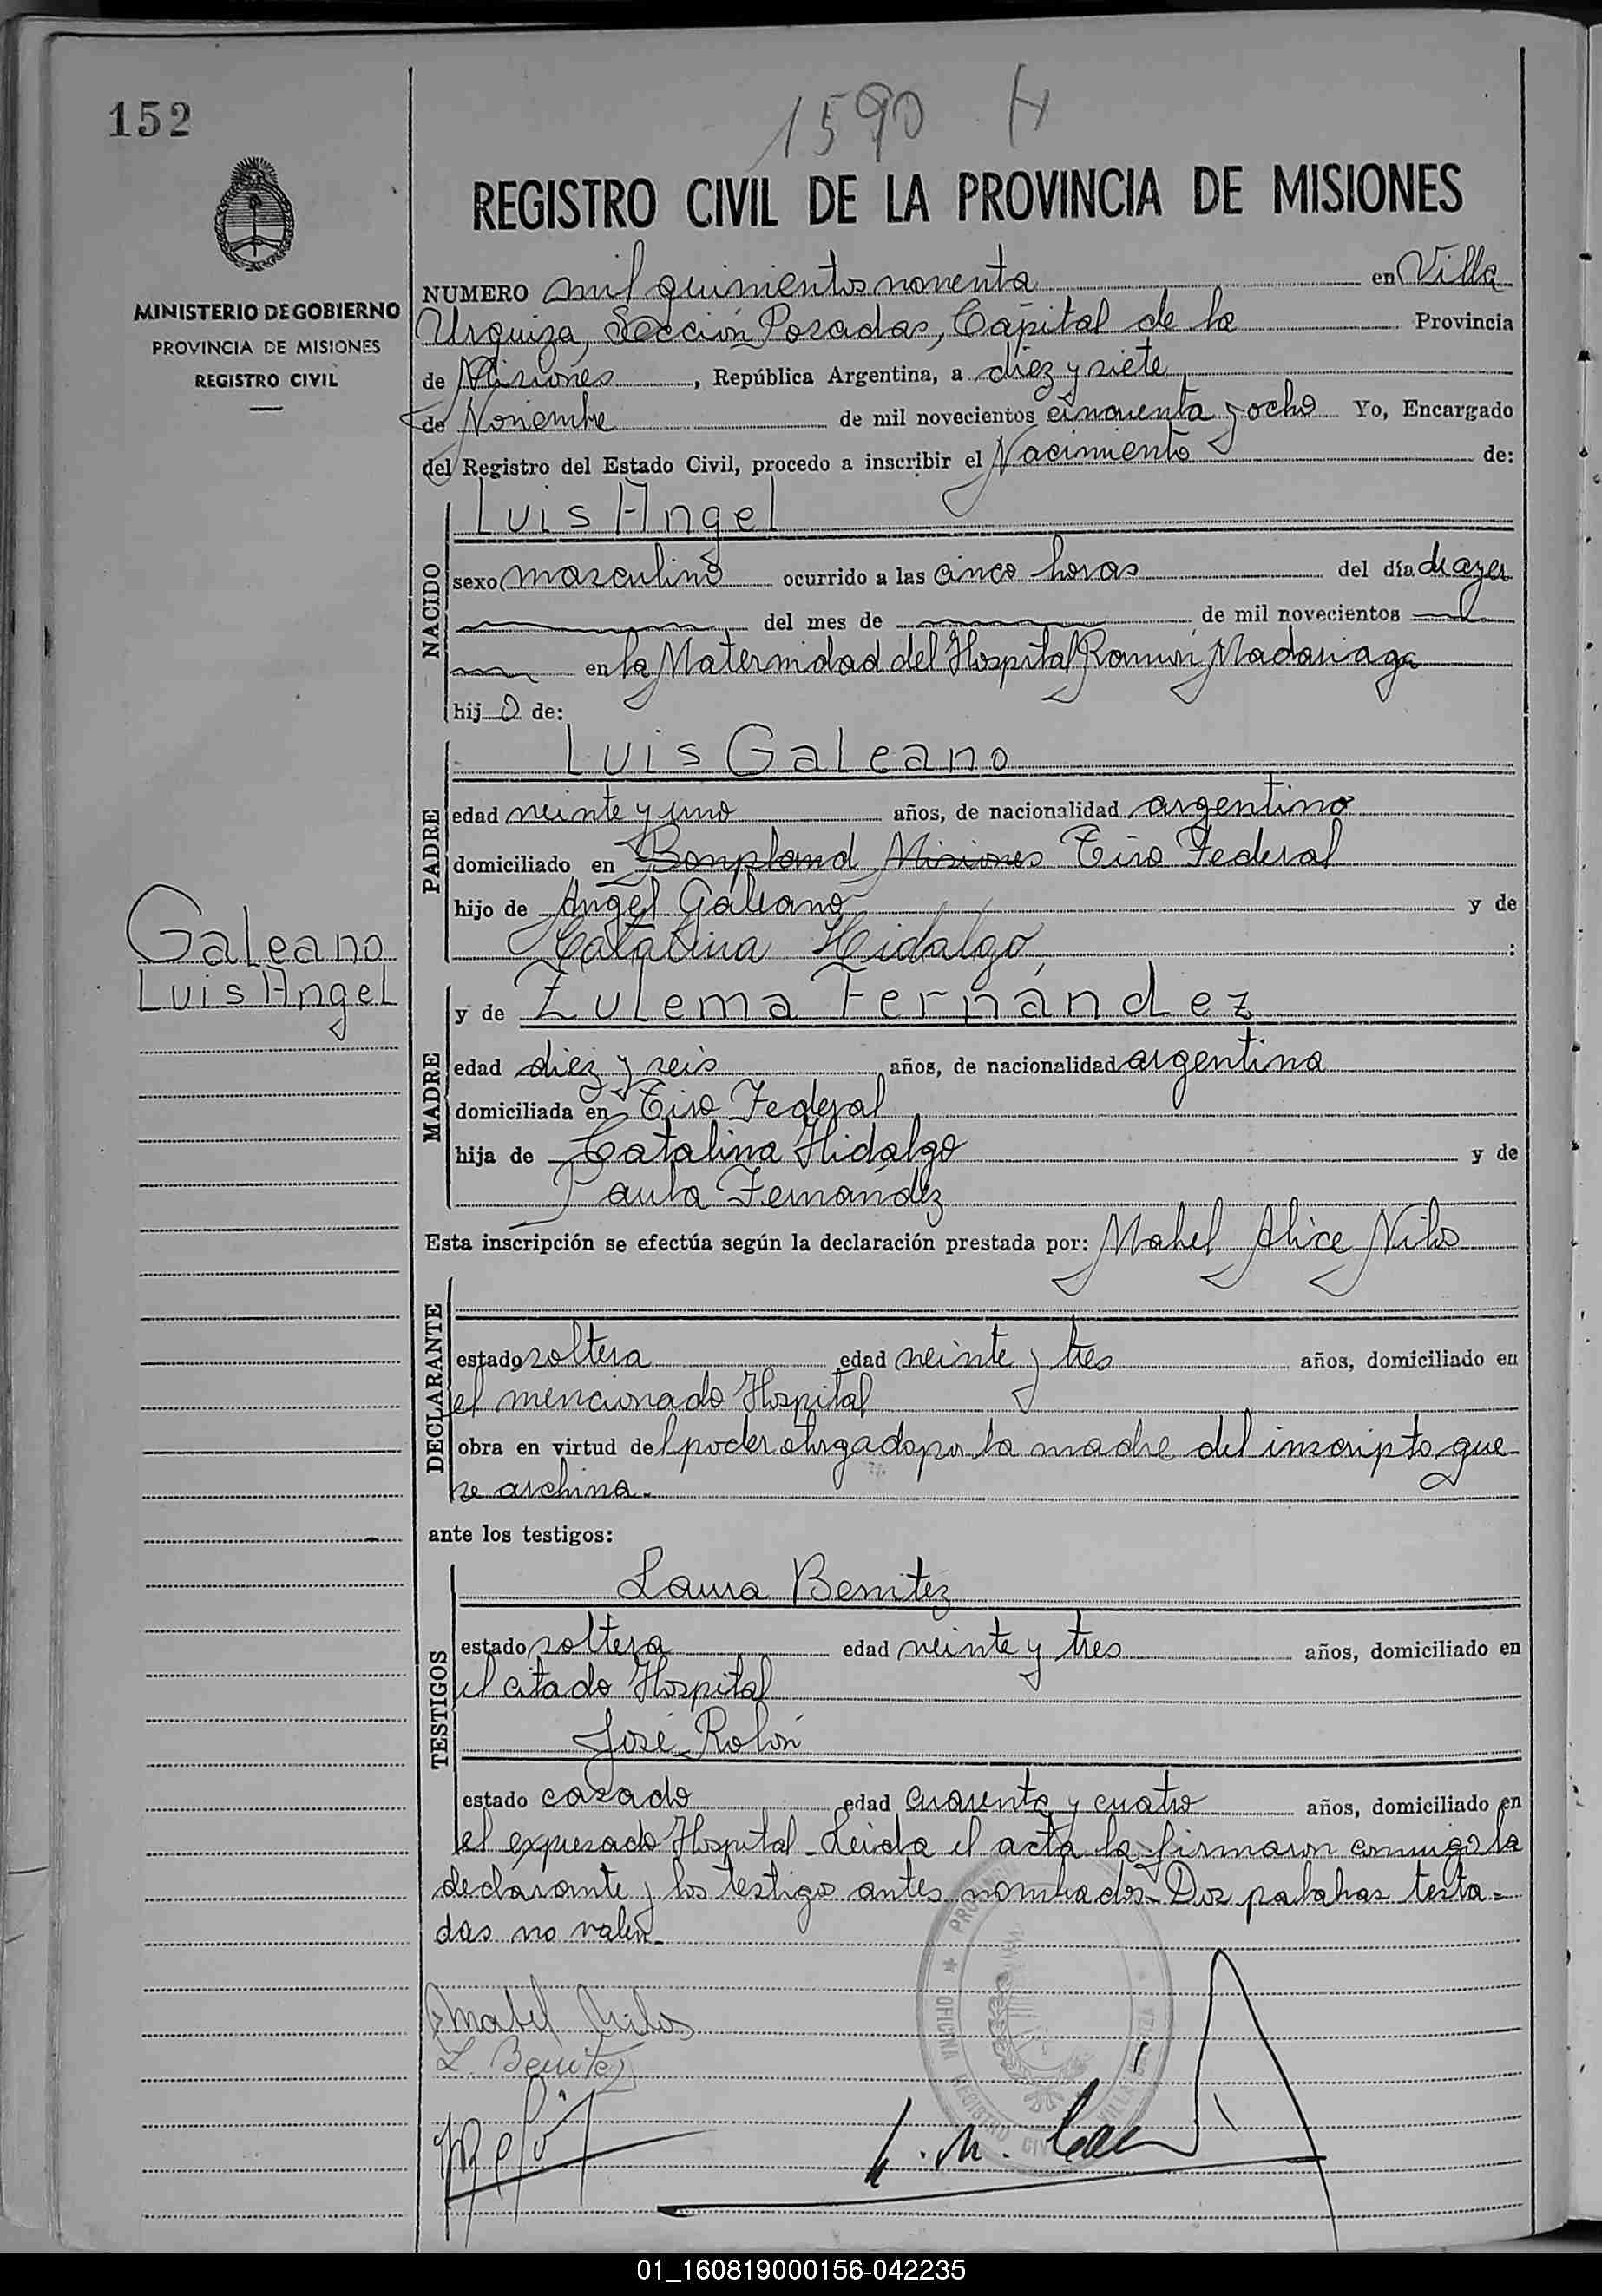 152
1590 H
REGISTRO CIVIL DE LA PROVINCIA DE MISIONES
MINISTERIO DE GOBIERNO
PROVINCIA DE MISIONES
REGISTRO CIVIL
NUMERO mil quinientos noventa en Villa
Urquiza, Sección Posadas, Capital de la Provincia
de Misiones, República Argentina, a diez y siete
de Noviembre de mil novecientos cincuenta y ocho Yo, Encargado
del Registro del Estado Civil, procedo a inscribir el Nacimiento de:
NACIDO
Luis Angel
sexo masculino ocurrido a las cinco horas del día de ayer
del mes de de mil novecientos
en la Maternidad del Hospital Ramón Madariaga
hijo de:
PADRE
Luis Galeano
edad veinte y uno años, de nacionalidad argentino
domiciliado en Bonpland Misiones Tiro Federal
hijo de Angel Galeano y de
Catalina Hidalgo :
Galeano
Luis Angel
MADRE
y de Zulema Fernández
edad diez y seis años, de nacionalidad argentina
domiciliada en Tiro Federal
hija de Catalina Hidalgo y de
Paula Fernandez
Esta inscripción se efectúa según la declaración prestada por: Mabel Alice Nilos
DECLARANTE
estado soltera edad veinte y tres años, domiciliado en
el mencionado Hospital
obra en virtud del poder otorgado por la madre del inscripto que
se archiva.
ante los testigos:
TESTIGOS
Laura Benitez
estado soltera edad veinte y tres años, domiciliado en
el citado Hospital
José Rolón
estado casado edad cuarenta y cuatro años, domiciliado en
el expresado Hospital - Leida el acta la firmaron conmigo la
declarante y los testigo antes nombrados - Dos palabras testa-
das no valen -
Mabel Nilos
L. Benitez
OFICINA REGISTRO CIVIL VILLA
01_160819000156-042235